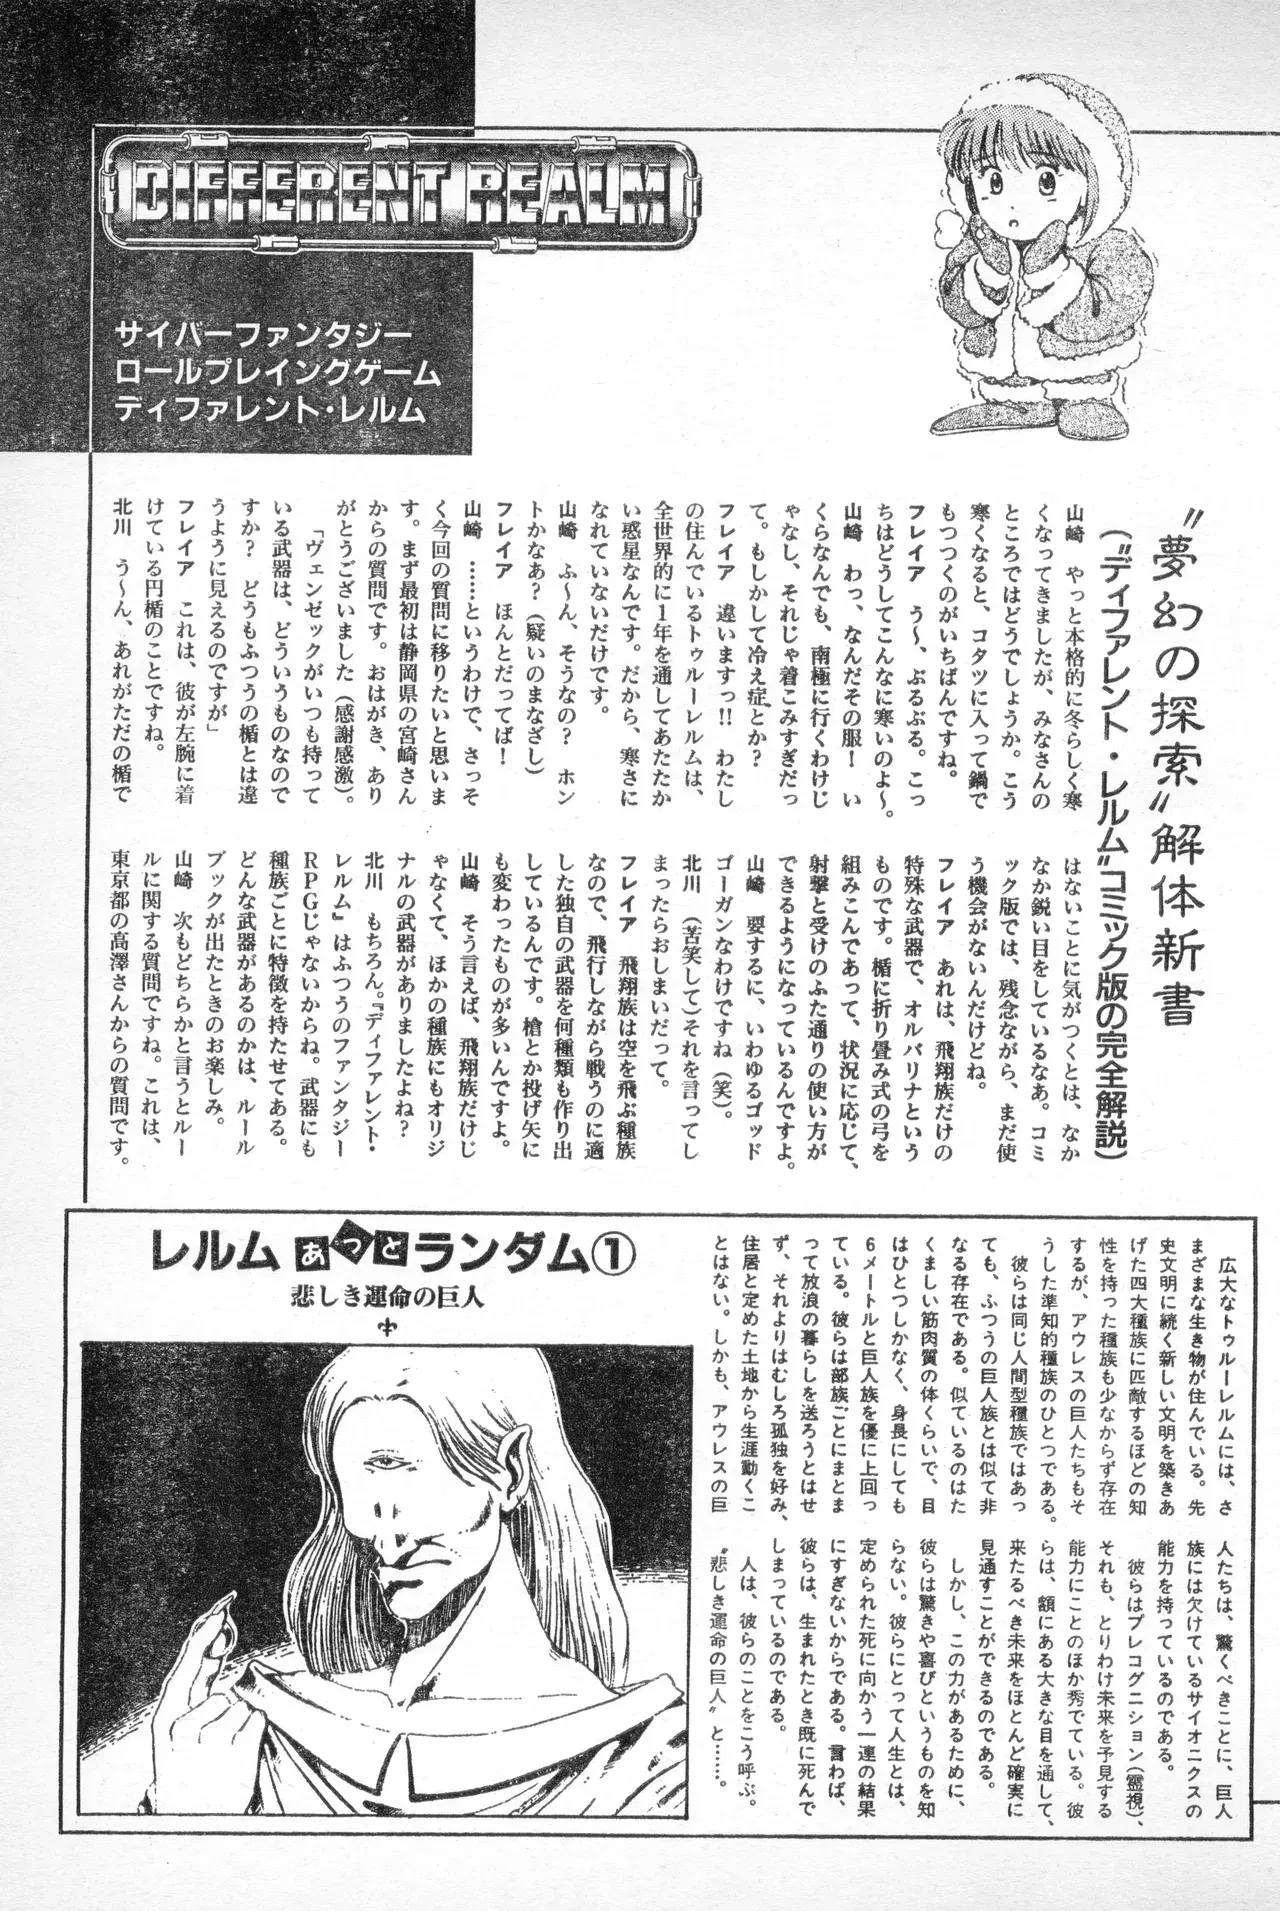 DIFFERENT REALM
サイバーファンタジー
ロールプレイングゲーム
ディファレント・レルム
〝夢幻の探索〟解体新書
(〝ディファレント・レルム〟コミック版の完全解説)
山崎　やっと本格的に冬らしく寒
くなってきましたが、みなさんの
ところではどうでしょうか。こう
寒くなると、コタツに入って鍋で
もつつくのがいちばんですね。
フレイア　う〜、ぶるぶる。こっ
ちはどうしてこんなに寒いのよ〜。
山崎　わっ、なんだその服！　い
くらなんでも、南極に行くわけじ
ゃなし、それじゃ着こみすぎだっ
て。もしかして冷え症とか？
フレイア　違いますっ!!　わたし
の住んでいるトゥルーレルムは、
全世界的に1年を通してあたたか
い惑星なんです。だから、寒さに
なれていないだけです。
山崎　ふ〜ん、そうなの？　ホン
トかなあ？（疑いのまなざし）
フレイア　ほんとだってば！
山崎　……というわけで、さっそ
く今回の質問に移りたいと思いま
す。まず最初は静岡県の宮崎さん
からの質問です。おはがき、あり
がとうございました（感謝感激）。
「ヴェンゼックがいつも持って
いる武器は、どういうものなので
すか？　どうもふつうの楯とは違
うように見えるのですが」
フレイア　これは、彼が左腕に着
けている円楯のことですね。
北川　う〜ん、あれがただの楯で
はないことに気がつくとは、なか
なか鋭い目をしているなあ。コミ
ック版では、残念ながら、まだ使
う機会がないんだけどね。
フレイア　あれは、飛翔族だけの
特殊な武器で、オルバリナという
ものです。楯に折り畳み式の弓を
組みこんであって、状況に応じて、
射撃と受けのふた通りの使い方が
できるようになっているんですよ。
山崎　要するに、いわゆるゴッド
ゴーガンなわけですね（笑）。
北川　（苦笑して）それを言ってし
まったらおしまいだって。
フレイア　飛翔族は空を飛ぶ種族
なので、飛行しながら戦うのに適
した独自の武器を何種類も作り出
しているんです。槍とか投げ矢に
も変わったものが多いんですよ。
山崎　そう言えば、飛翔族だけじ
ゃなくて、ほかの種族にもオリジ
ナルの武器がありましたよね？
北川　もちろん。『ディファレント・
レルム』はふつうのファンタジー
RPGじゃないからね。武器にも
種族ごとに特徴を持たせてある。
どんな武器があるのかは、ルール
ブックが出たときのお楽しみ。
山崎　次もどちらかと言うとルー
ルに関する質問ですね。これは、
東京都の高澤さんからの質問です。
レルムあっとランダム①
悲しき運命の巨人
広大なトゥルーレルムには、さ
まざまな生き物が住んでいる。先
史文明に続く新しい文明を築きあ
げた四大種族に匹敵するほどの知
性を持った種族も少なからず存在
するが、アウレスの巨人たちもそ
うした準知的種族のひとつである。
彼らは同じ人間型種族ではあっ
ても、ふつうの巨人族とは似て非
なる存在である。似ているのはた
くましい筋肉質の体くらいで、目
はひとつしかなく、身長にしても
6メートルと巨人族を優に上回っ
ている。彼らは部族ごとにまとま
って放浪の暮らしを送ろうとはせ
ず、それよりはむしろ孤独を好み、
住居と定めた土地から生涯動くこ
とはない。しかも、アウレスの巨
人たちは、驚くべきことに、巨人
族には欠けているサイオニクスの
能力を持っているのである。
彼らはプレコグニション（霊視）、
それも、とりわけ未来を予見する
能力にことのほか秀でている。彼
らは、額にある大きな目を通して、
来たるべき未来をほとんど確実に
見通すことができるのである。
しかし、この力があるために、
彼らは驚きや喜びというものを知
らない。彼らにとって人生とは、
定められた死に向かう一連の結果
にすぎないからである。言わば、
彼らは、生まれたとき既に死んで
しまっているのである。
人は、彼らのことをこう呼ぶ。
〝悲しき運命の巨人〟と……。